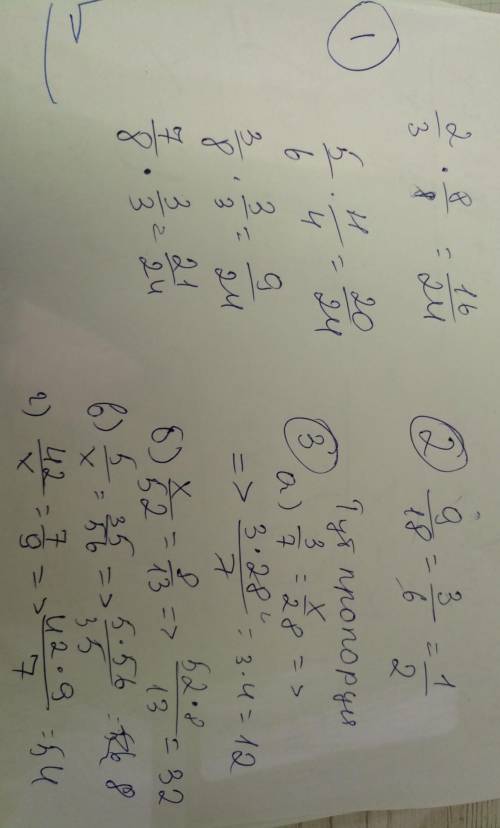 1
2/3 · 8/8 = 16/24
5/6 · 4/4 = 20/24
3/8 · 3/3 = 9/24
7/8 · 3/3 = 21/24
2 9/18 = 3/6 = 1/2
Тут пропорция
3
а) 3/7 = x/28 =>
=> 3·28/7 = 3·4 = 12
б) x/52 = 8/13 => 52·8/13 = 32
в) 5/x = 35/56 => 5·56/35 = 8
г) 42/x = 7/9 => 42·9/7 = 54